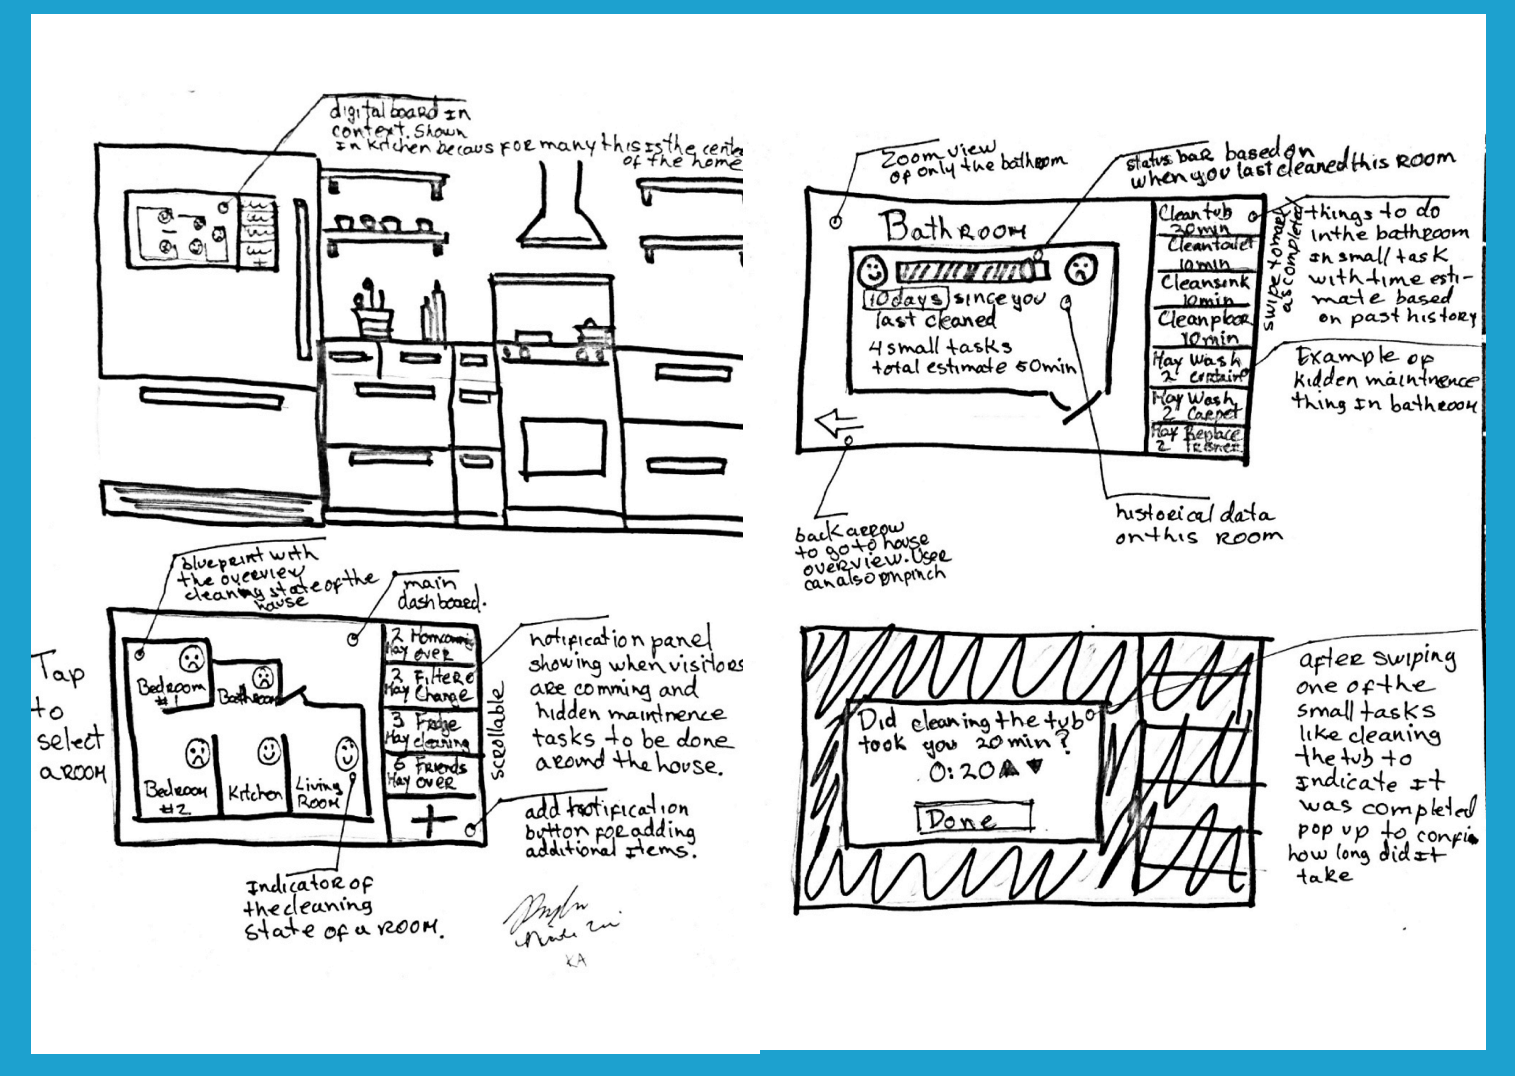 digital board In
context. Shown
In kitchen becaus for many this is the cente
of the home
blueprint with
the overview
cleaning state of the
house
main
dashboard.
Tap
to
select
a room
Bedroom
#1
Bathroom
Bedroom
#2
Kitchen
Living
Room
2
May over
2 Filtere
May Change
3 Fridge
May cleaning
6 Friends
May over
+
scrollable
notification panel
showing when visitors
are comming and
hidden maintnence
tasks to be done
around the house.
add notification
button for adding
additional Items.
Indicator of
the cleaning
state of a room.
KA
Zoom view
of only the bathroom
status bar based on
when you last cleaned this room
Bathroom
10 days since you
last cleaned
4 small tasks
total estimate 50min
Clean tub
20min
Clean toilet
10min
Clean sink
10min
Clean floor
10min
May Wash
2 curtain
May Wash
2 Carpet
May Replace
2
swipe to mark
as completed
things to do
in the bathroom
In small task
with time esti-
mate based
on past history
Example of
hidden maintnence
thing In bathroom
back arrow
to go to house
overview. User
can also pinch
historical data
on this room
Did cleaning the tub
took you 20min?
0:20
Done
after swiping
one of the
small tasks
like cleaning
the tub to
Indicate It
was completed
pop up to confirm
how long did it
take